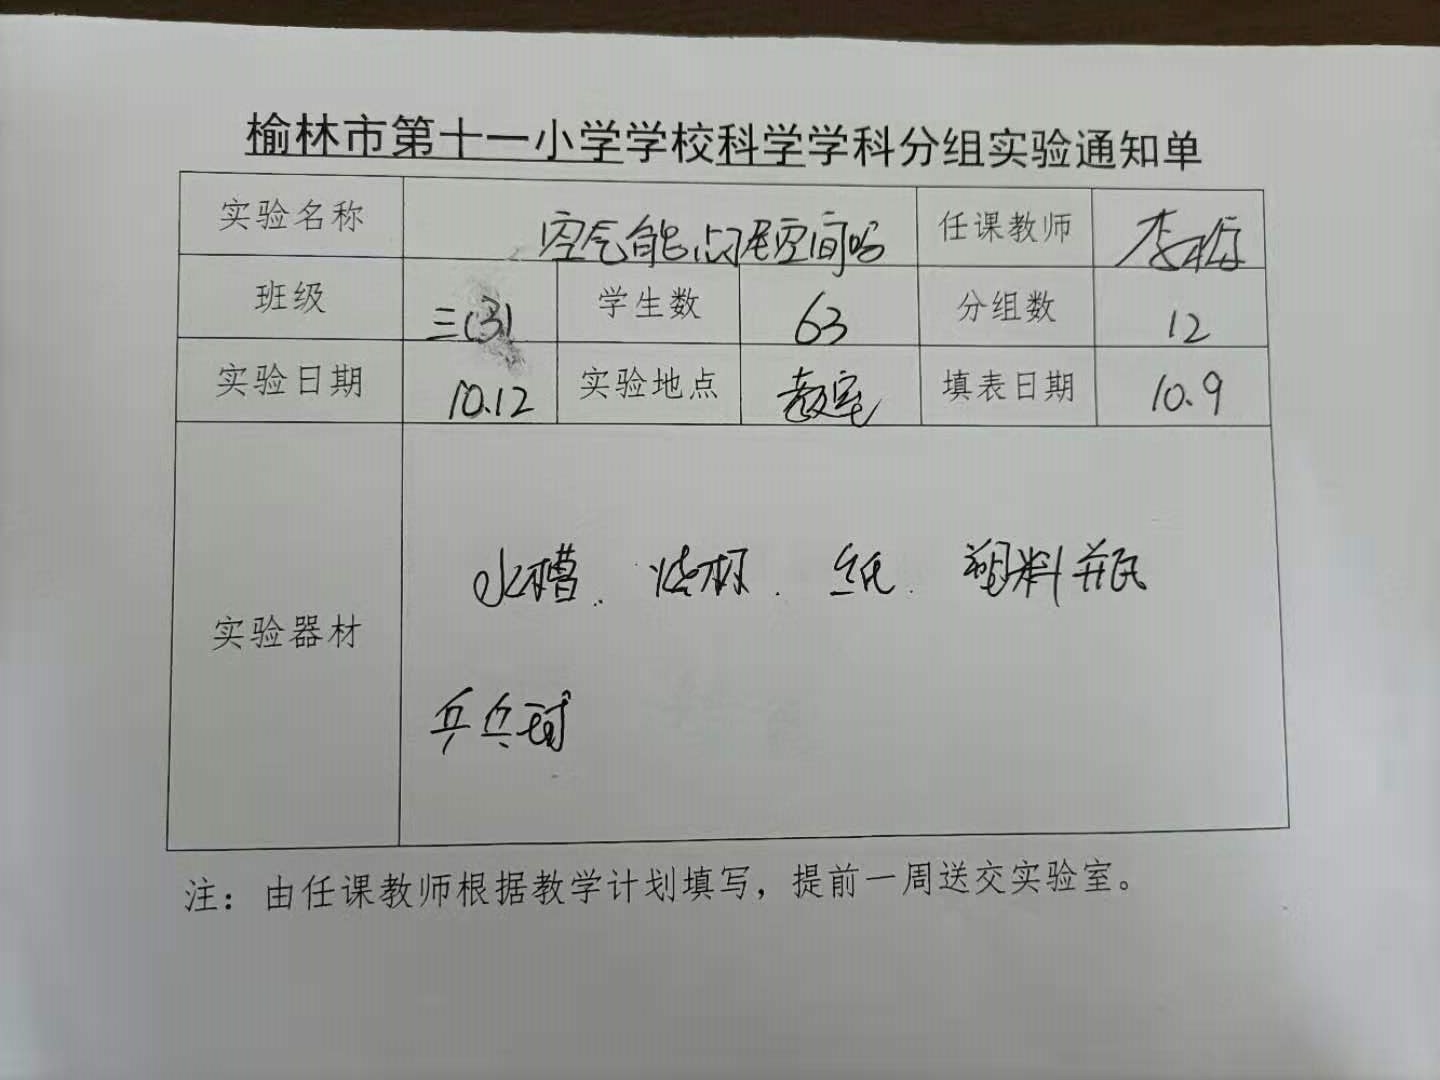 榆林市第十一小学学校科学学科分组实验通知单
实验名称 空气能占据空间吗 任课教师 李
班级 三(3) 学生数 63 分组数 12
实验日期 10.12 实验地点 教室 填表日期 10.9
实验器材
水槽、烧杯、纸、塑料瓶
乒乓球
注：由任课教师根据教学计划填写，提前一周送交实验室。